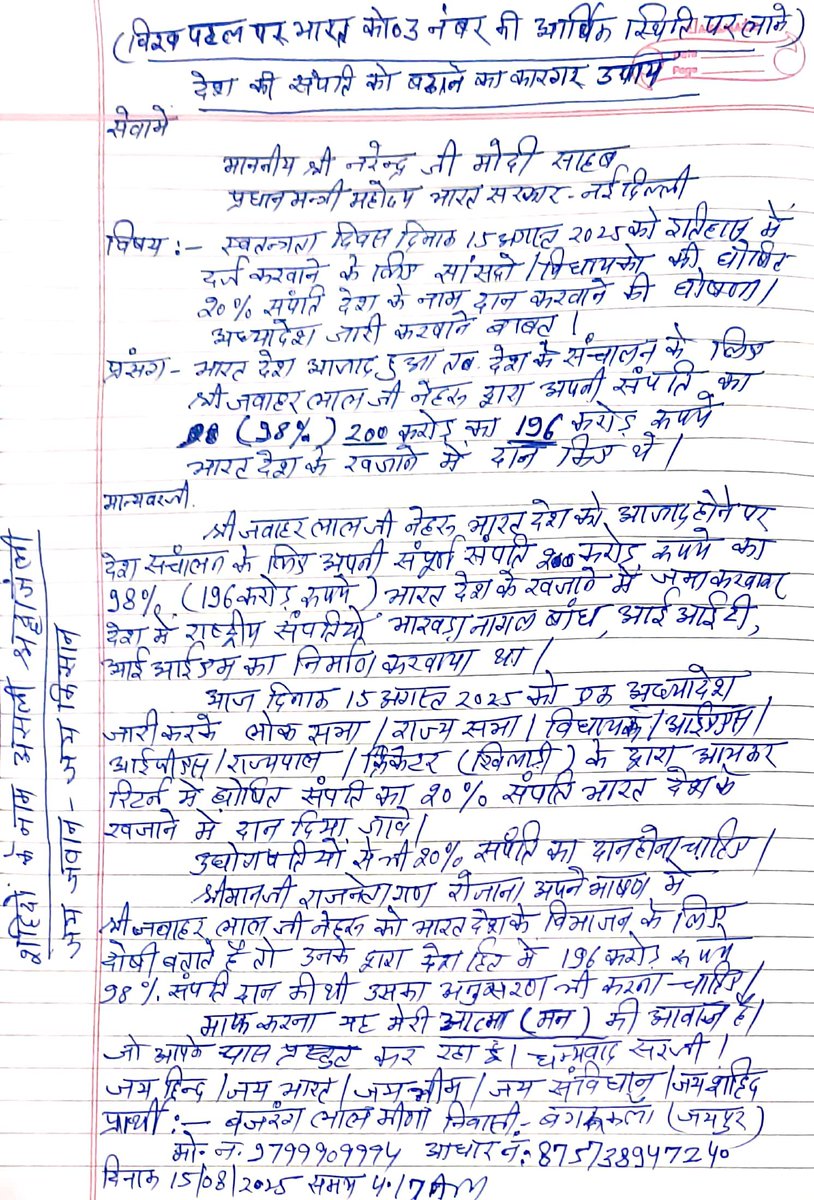 (विश्व पटल पर भारत को 03 नंबर की आर्थिक स्थिति पर लाने)
देश की संपति को बढाने का कारगर उपाय
सेवामें
माननीय श्री नरेन्द्र जी मोदी साहब
प्रधानमन्त्री महोदय भारत सरकार - नई दिल्ली
विषय :- स्वतन्त्रता दिवस दिनांक 15 अगस्त 2025 को इतिहास में
दर्ज करवाने के लिए सांसदो / विधायको की घोषित
20% संपति देश के नाम दान करवाने की घोषणा /
अध्यादेश जारी करवाने बाबत |
प्रसंग - भारत देश आजाद हुआ तब देश के संचालन के लिए
श्री जवाहर लाल जी नेहरू द्वारा अपनी संपति का
(98%) 200 करोड़ का 196 करोड़ रूपये
भारत देश के खजाने में दान किए थे |
मान्यवरजी.
श्री जवाहर लाल जी नेहरू भारत देश को आजाद होने पर
देश संचालन के लिए अपनी संपूर्ण संपति 200 करोड़ रूपये का
98% (196 करोड़ रूपये) भारत देश के खजाने में जमा करवाकर
देश में राष्ट्रीय संपतियों भाखड़ा नागल बांध, आई आई टी,
आई आई एम का निर्माण करवाया था |
आज दिनांक 15 अगस्त 2025 को एक अध्यादेश
जारी करके लोक सभा / राज्य सभा / विधायक / आईएएस /
आईपीएस / राज्यपाल / क्रिकेटर (खिलाड़ी) के द्वारा आयकर
रिटर्न में घोषित संपति का 20% संपति भारत देश के
खजाने में दान दिया जावे |
उधोगपतियों से भी 20% संपति का दान होना चाहिए |
श्रीमानजी राजनेतागण रोजाना अपने भाषण में
श्री जवाहर लाल जी नेहरू को भारत देश के विभाजन के लिए
दोषी बताते है तो उनके द्वारा देश हित में 196 करोड़ रूपये
98% संपति दान की थी उसका अनुसरण भी करना चाहिए |
माफ करना यह मेरी आत्मा (मन) की आवाज है |
जो आपके पास प्रस्तुत कर रहा हूँ | धन्यवाद सरजी |
जय हिन्द / जय भारत / जय भीम / जय संविधान / जय शहिद
प्रार्थी :- बजरंग लाल मीणा निवासी - (जयपुर)
मो. न. 9799909994 आधार नं. 875738947240
दिनांक 15/08/2025 समय 4:17 AM
शहिदों के नाम असली श्रद्धांजली
जय जवान - जय किसान
Date
Page